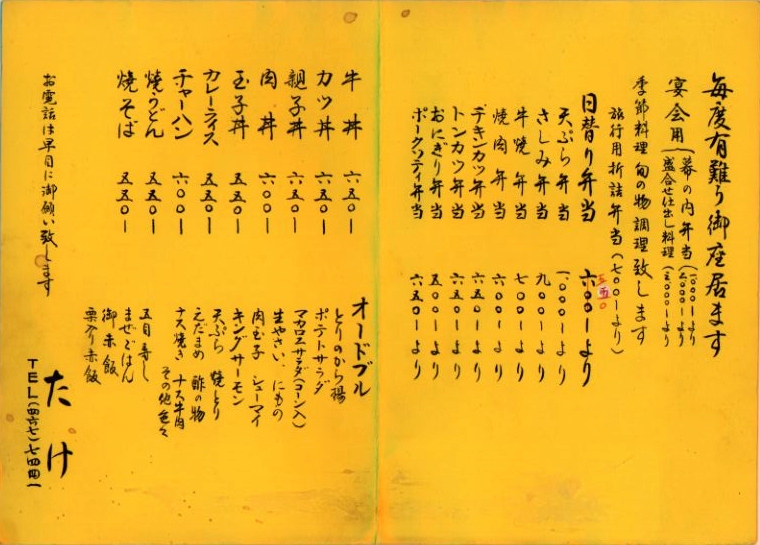 毎度有難り御座居ます
宴会用(幕の内弁当(一〇〇〇ーより
二〇〇〇ーより
盛合せ仕出し料理(三〇〇〇ーより
季節料理 旬の物調理致します
旅行用折詰弁当(七〇〇ーより)
日替り弁当 六〇〇ーより
五五〇
天ぷら弁当 一、〇〇〇ーより
さしみ弁当 九〇〇ーより
牛焼弁当 七〇〇ーより
焼肉弁当 六〇〇ーより
チキンカツ弁当 六五〇ーより
トンカツ弁当 六五〇ーより
おにぎり弁当 五〇〇ーより
ポークソティ弁当 六五〇ーより
牛丼 六五〇ー
カツ丼 六五〇ー
親子丼 六五〇ー
肉丼 六〇〇ー
玉子丼 五五〇ー
カレーライス 五五〇ー
チャーハン 六〇〇ー
焼うどん 五五〇ー
焼そば 五五〇ー
お電話は早目に御願い致します
オードブル
とりのから揚
ポテトサラダ
マカロニサラダ(コーン入)
生やさい、にもの
肉玉子 シューマイ
キングサーモン
天ぷら 焼とり
えだまめ 酢の物
ナス焼き ナス牛肉
その他色々
五目寿し
まぜごはん
御赤飯
栗入り赤飯
たけ
TEL(四六七)七四四一